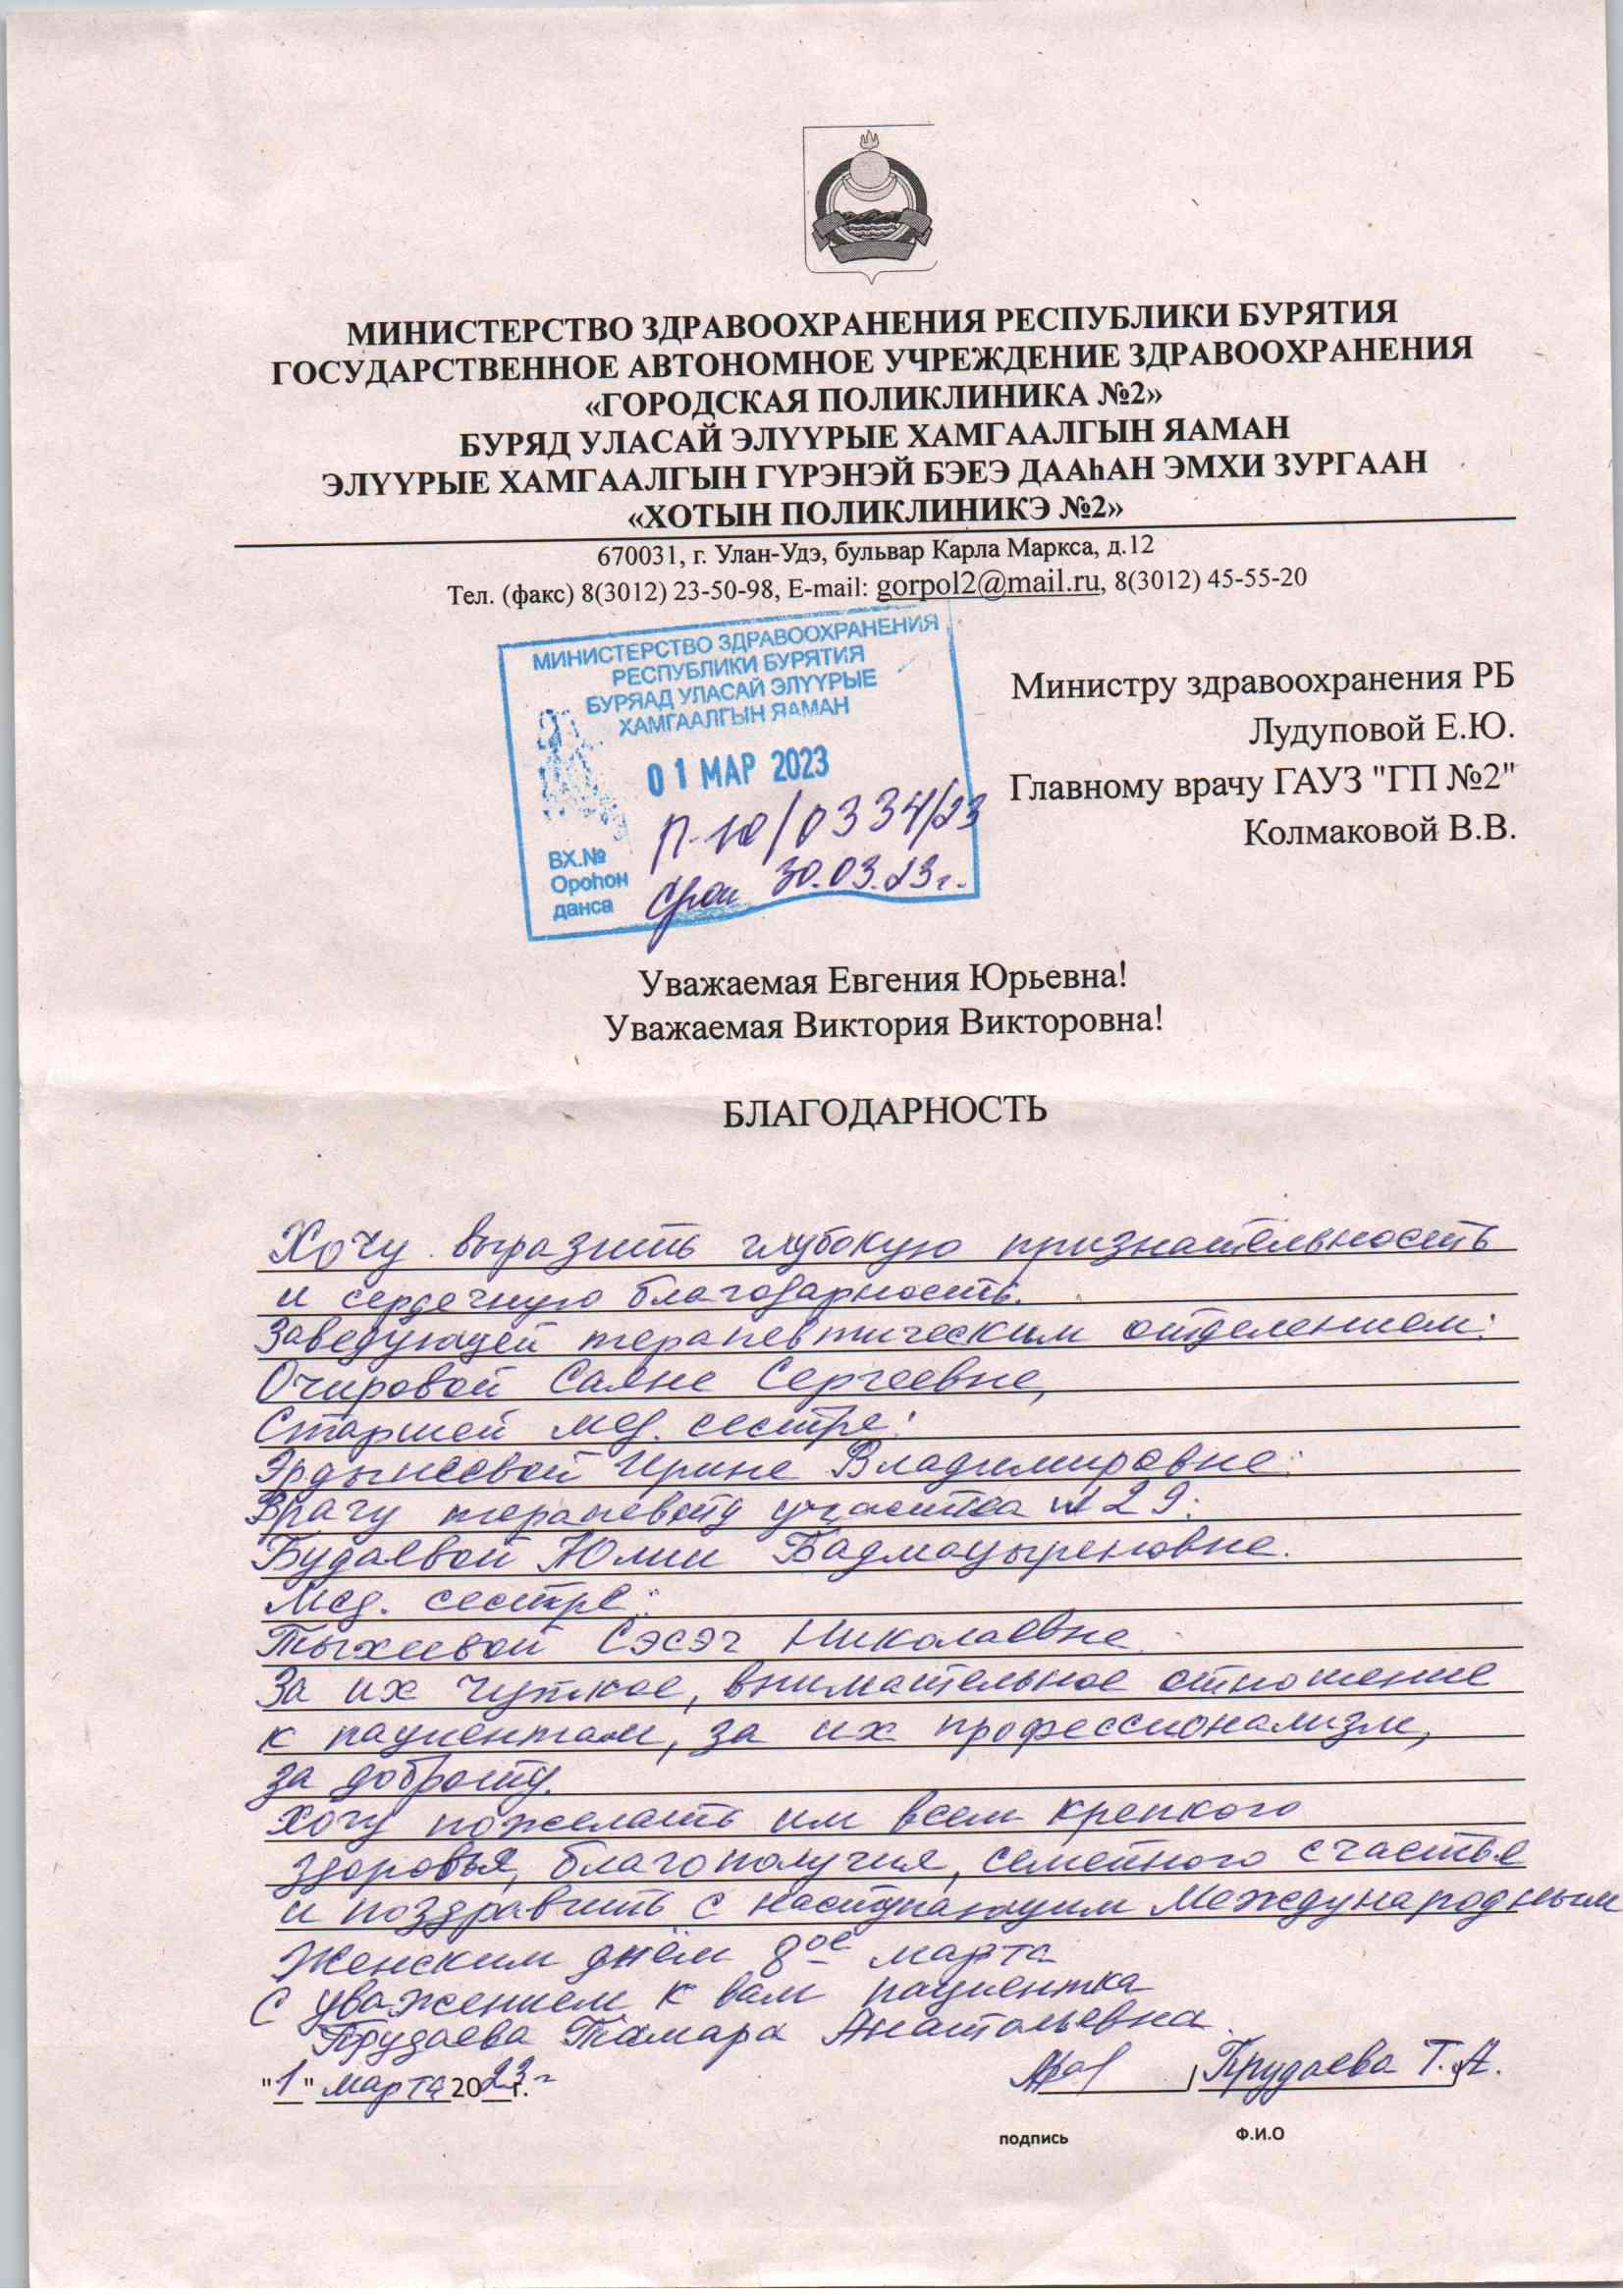 МИНИСТЕРСТВО ЗДРАВООХРАНЕНИЯ РЕСПУБЛИКИ БУРЯТИЯ
ГОСУДАРСТВЕННОЕ АВТОНОМНОЕ УЧРЕЖДЕНИЕ ЗДРАВООХРАНЕНИЯ
«ГОРОДСКАЯ ПОЛИКЛИНИКА №2»
БУРЯД УЛАСАЙ ЭЛҮҮРЫЕ ХАМГААЛГЫН ЯАМАН
ЭЛҮҮРЫЕ ХАМГААЛГЫН ГҮРЭНЭЙ БЭЕЭ ДААҺАН ЭМХИ ЗУРГААН
«ХОТЫН ПОЛИКЛИНИКЭ №2»
670031, г. Улан-Удэ, бульвар Карла Маркса, д.12
Тел. (факс) 8(3012) 23-50-98, E-mail: gorpol2@mail.ru, 8(3012) 45-55-20
МИНИСТЕРСТВО ЗДРАВООХРАНЕНИЯ
РЕСПУБЛИКИ БУРЯТИЯ
БУРЯАД УЛАСАЙ ЭЛҮҮРЫЕ
ХАМГААЛГЫН ЯАМАН
01 МАР 2023
П-10/0334/23
ВХ.№
Ороһон
данса
Срок 30.03.23г.
Министру здравоохранения РБ
Лудуповой Е.Ю.
Главному врачу ГАУЗ "ГП №2"
Колмаковой В.В.
Уважаемая Евгения Юрьевна!
Уважаемая Виктория Викторовна!
БЛАГОДАРНОСТЬ
Хочу выразить глубокую признательность
и сердечную благодарность.
Заведующей терапевтическим отделением:
Очировой Саяне Сергеевне,
Старшей мед. сестре:
Эрдынеевой Ирине Владимировне:
Врачу терапевту участка №29:
Будаевой Юлии Бадмацыреновне.
Мед. сестре:
Тыхеевой Сэсэг Николаевне.
За их чуткое, внимательное отношение
к пациентам, за их профессионализм,
за доброту.
Хочу пожелать им всем крепкого
здоровья, благополучия, семейного счастья
и поздравить с наступающим Международным
Женским днём 8ое марта
С уважением к вам пациентка
Прудаева Тамара Анатольевна.
"1" марта 2023г.
Прудаева Т.А.
подпись
Ф.И.О